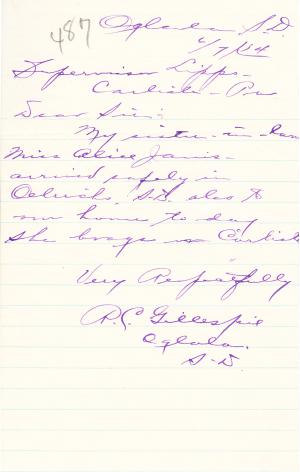 487
Oglala S.D.
6/7/14
Supervisor Lipps-
Carlisle - Pa
Dear Sir:-
My sister-in-law
Miss Alice Janis-
arrived safely in
Oelrichs, S.D. also to
our home to day
she brags on Carlisle
Very Respectfully
R.C. Gillespie
Oglala.
S-D.